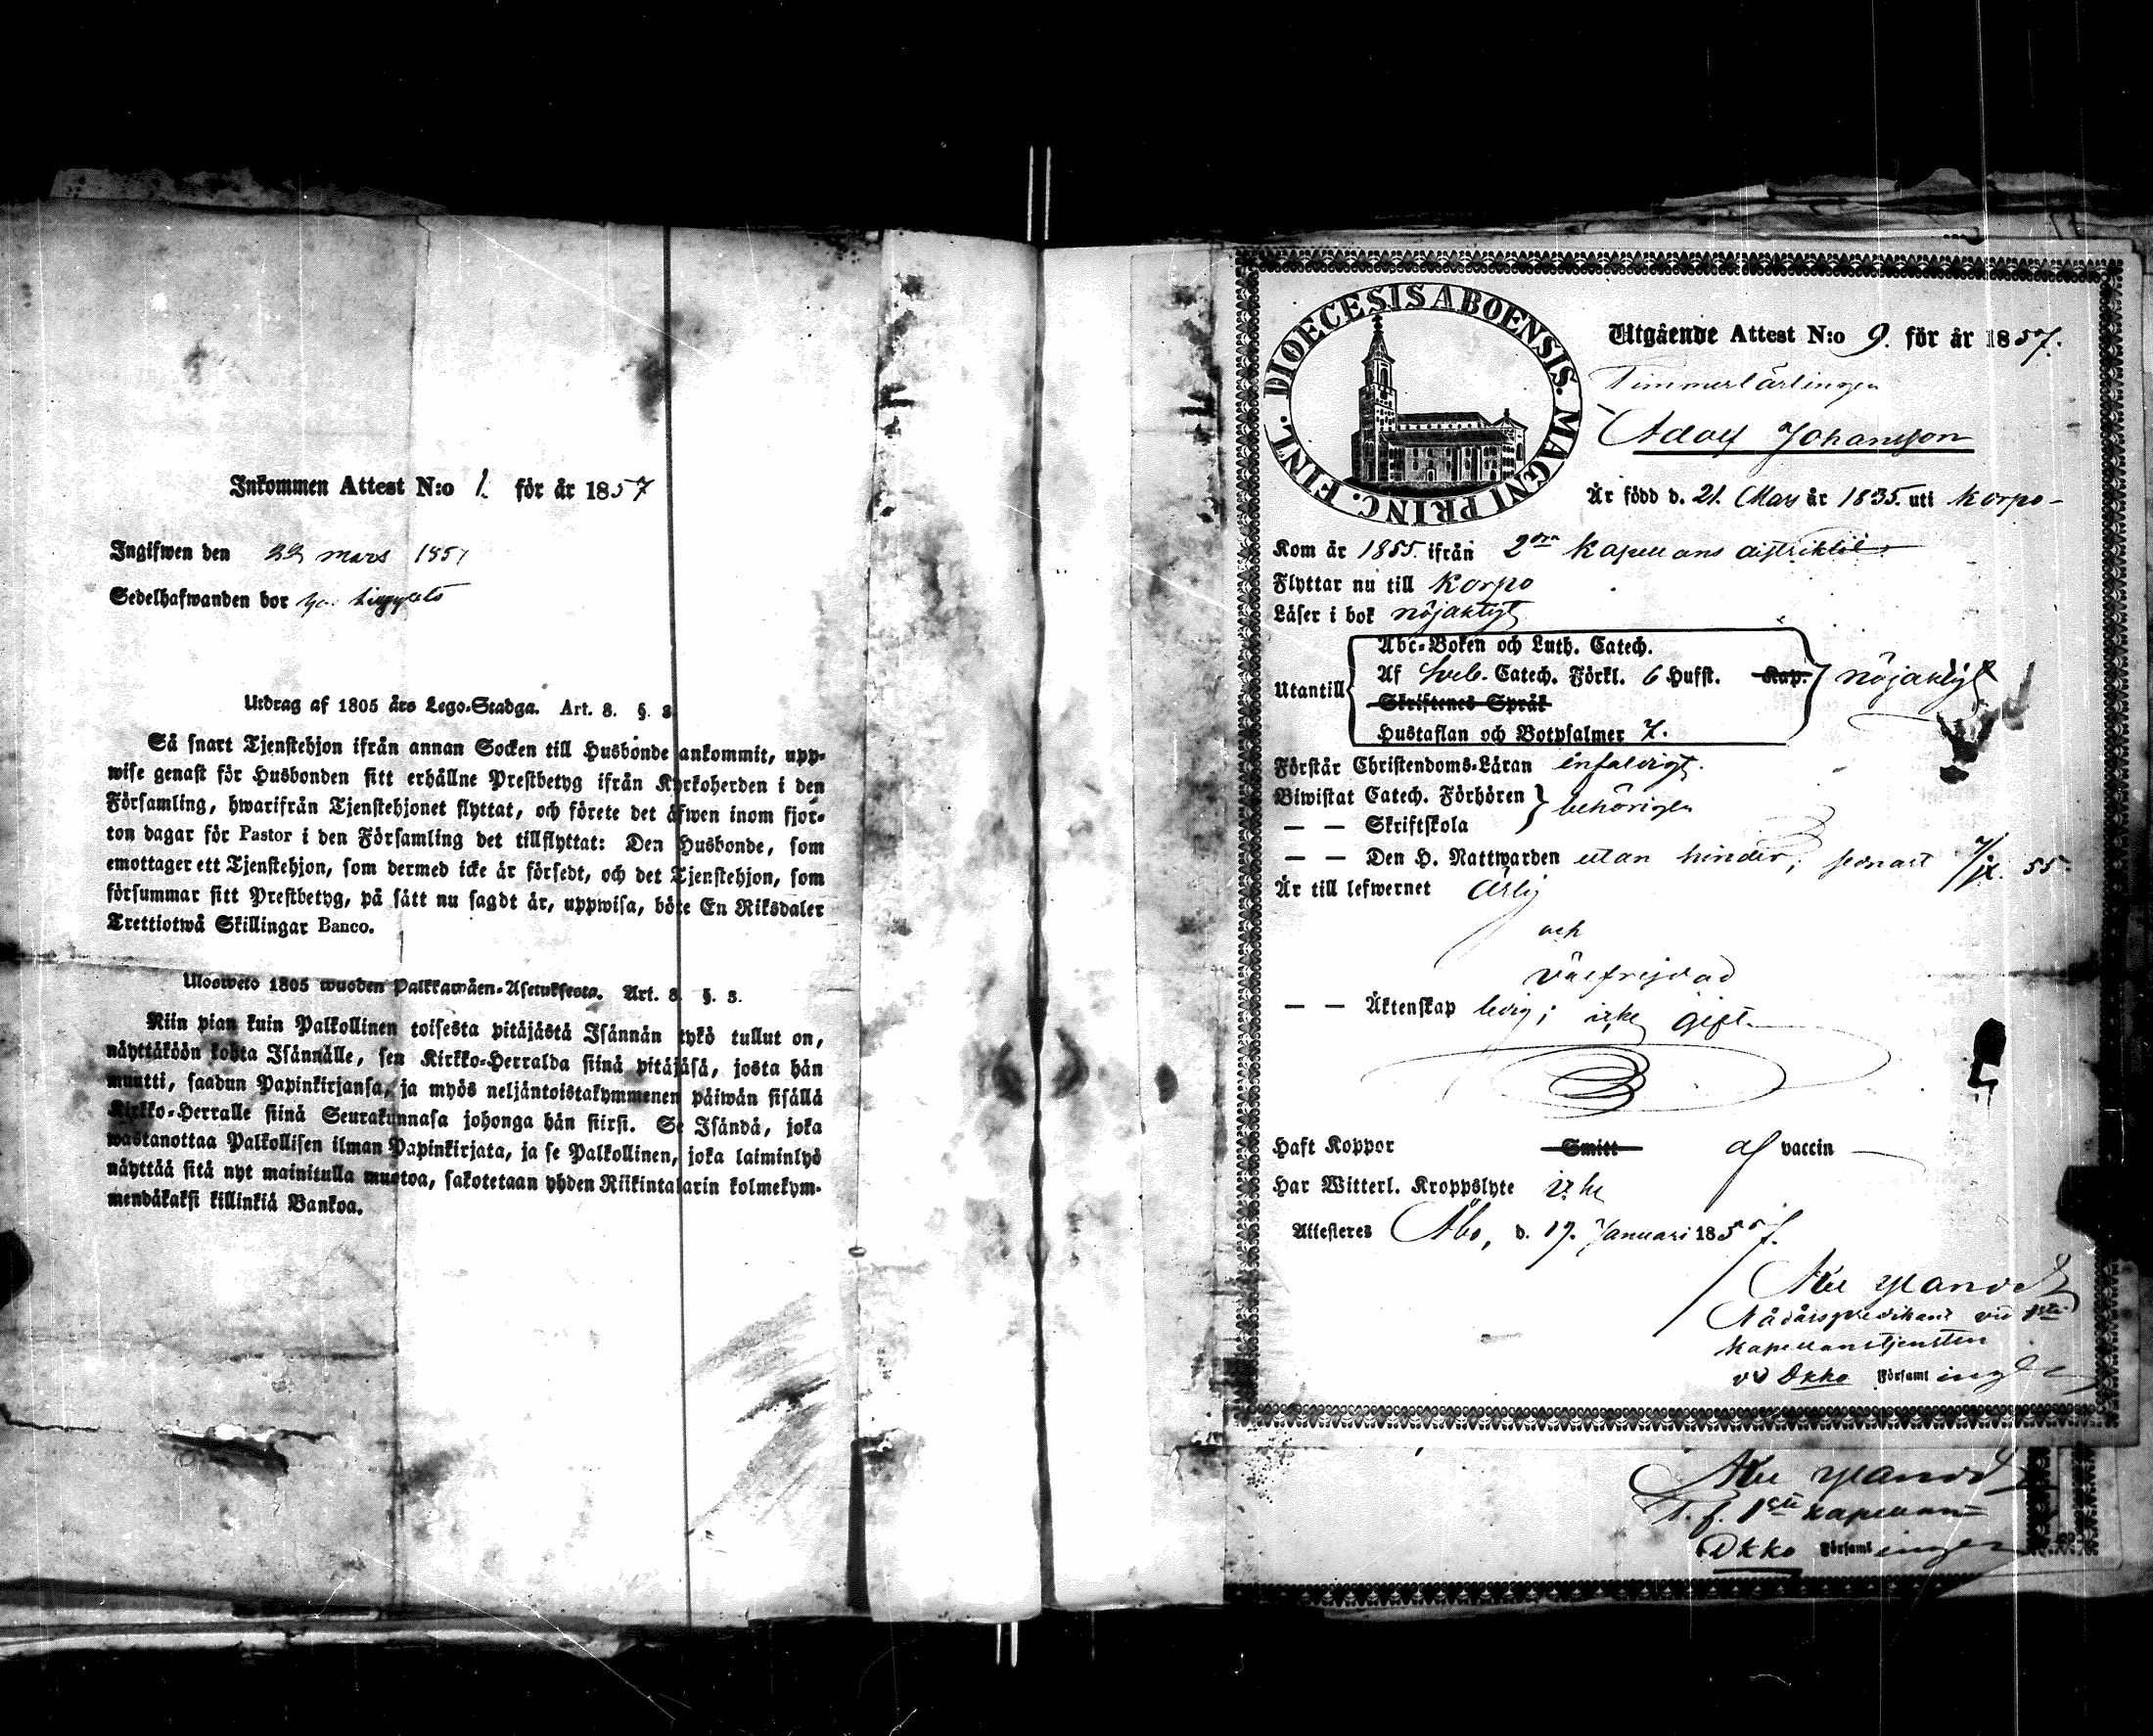 Inkommen Attest N:o 1. för år 1857
Ingifwen den 22 mars 1857
Sedelhafwanden bor
Utdrag af 1805 års Lego-Stadga. Art. 8. §. 3
Så snart Tjenstehjon ifrån annan Socken till Husbonde ankommit, upp-
wise genast för Husbonden sitt erhållne Prestbetyg ifrån Kyrkoherden i den
Församling, hwarifrån Tjenstehjonet flyttat, och förete det äfwen inom fjor-
ton dagar för Pastor i den Församling det tillflyttat: Den Husbonde, som
emottager ett Tjenstehjon, som dermed icke är försedt, och det Tjenstehjon, som
försummar sitt Prestbetyg, på sätt nu sagdt är, uppwisa, böte En Riksdaler
Trettiotwå Skillingar Banco.
Ulosweto 1805 wuoden Palkkawäen-Asetuksesta. Art. 8 §. 3.
Niin pian kuin Palkollinen toisesta pitäjästä Isännän tykö tullut on,
näyttäköön kohta Isännälle, sen Kirkko-Herralda siinä pitäjäsä, josta hän
muutti, saadun Papinkirjansa, ja myös neljäntoistakymmenen päiwän sisällä
Kirkko-Herralle siinä Seurakunnasa johonga hän siirsi. Se Isändä, joka
wastanottaa Palkollisen ilman Papinkirjata, ja se Palkollinen, joka laiminlyö
näyttää sitä nyt mainitulla muotoa, sakotetaan yhden Riikintalarin kolmekym-
mendäkaksi killinkiä Bankoa.
DIOECESIS ABOENSIS. MAGNI PRINC. FINL.
Utgående Attest N:o 9. för år 1857.
Timmerlärlingen
Adolf Johansson
Är född d. 21. Mars år 1835. uti Korpo-
Kom år 1855. ifrån 2dra Kapellans distriktet
Flyttar nu till Korpo
Läser i bok nöjaktigt
Abc-Boken och Luth. Catech.
Utantill Af Sveb. Catech. Förkl. 6 Hufst. Kap. nöjaktigt
Skriftenes Språk
Hustaflan och Botpsalmer 7.
Förstår Christendoms-Läran enfaldigt.
Biwistat Catech. Förhören behörigen
— — Skriftskola
— — Den H. Nattwarden utan hinder; senast 7/ix. 55.
Är till lefwernet ärlig
och
välfrejdad
— — Äktenskap ledig; icke gift.
Haft Koppor Smitt af vaccin
Har Witterl. Kroppslyte icke
Attesteres Åbo, d. 17. Januari 1857.
Nådårspredikant vid 1sta
Kapellanstjensten
vid Dkko Församlingen
T. f. 1ste Kapellan
Dkko Församlingen